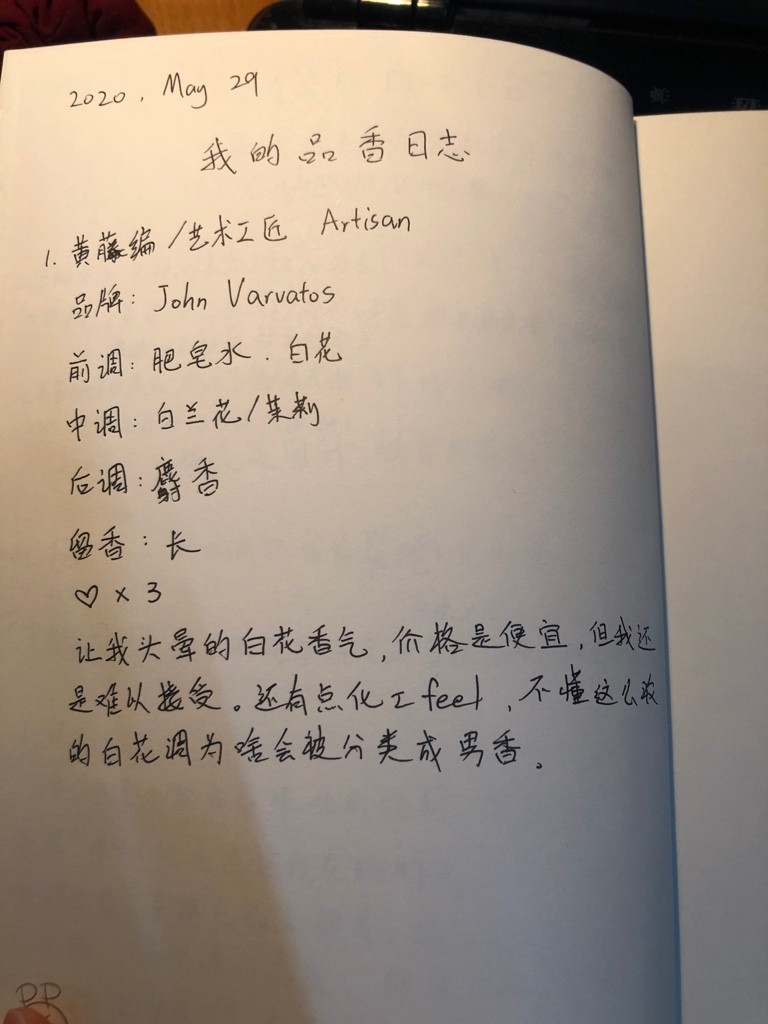 2020. May 29
我的品香日志
1. 黄藤编/艺术工匠 Artisan
品牌: John Varvatos
前调: 肥皂水. 白花
中调: 白兰花/茉莉
后调: 麝香
留香: 长
♡ × 3
让我头晕的白花香气,价格是便宜,但我还
是难以接受。还有点化工feel,不懂这么浓
的白花调为啥会被分类成男香。
PP